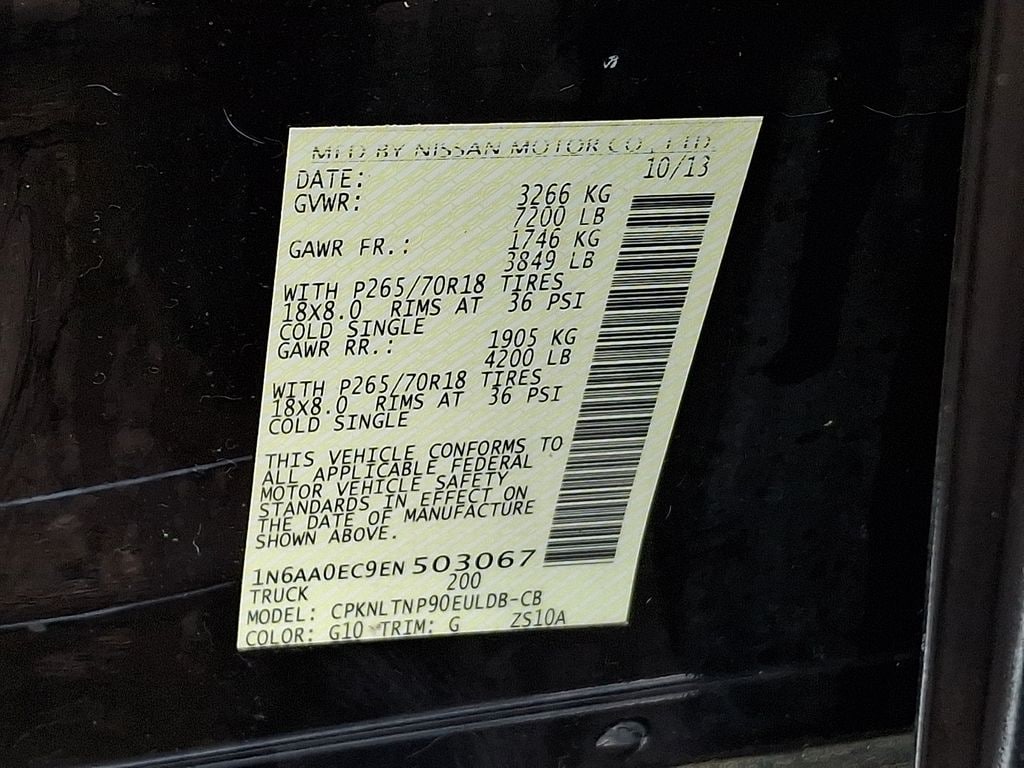 MFD BY NISSAN MOTOR CO., LTD.
DATE: 10/13
GVWR: 3266 KG
7200 LB
GAWR FR.: 1746 KG
3849 LB
WITH P265/70R18 TIRES
18X8.0 RIMS AT 36 PSI
COLD SINGLE
GAWR RR.: 1905 KG
4200 LB
WITH P265/70R18 TIRES
18X8.0 RIMS AT 36 PSI
COLD SINGLE
THIS VEHICLE CONFORMS TO
ALL APPLICABLE FEDERAL
MOTOR VEHICLE SAFETY
STANDARDS IN EFFECT ON
THE DATE OF MANUFACTURE
SHOWN ABOVE.
1N6AA0EC9EN 503067
TRUCK 200
MODEL: CPKNLTNP90EULDB-CB
COLOR: G10 TRIM: G ZS10A